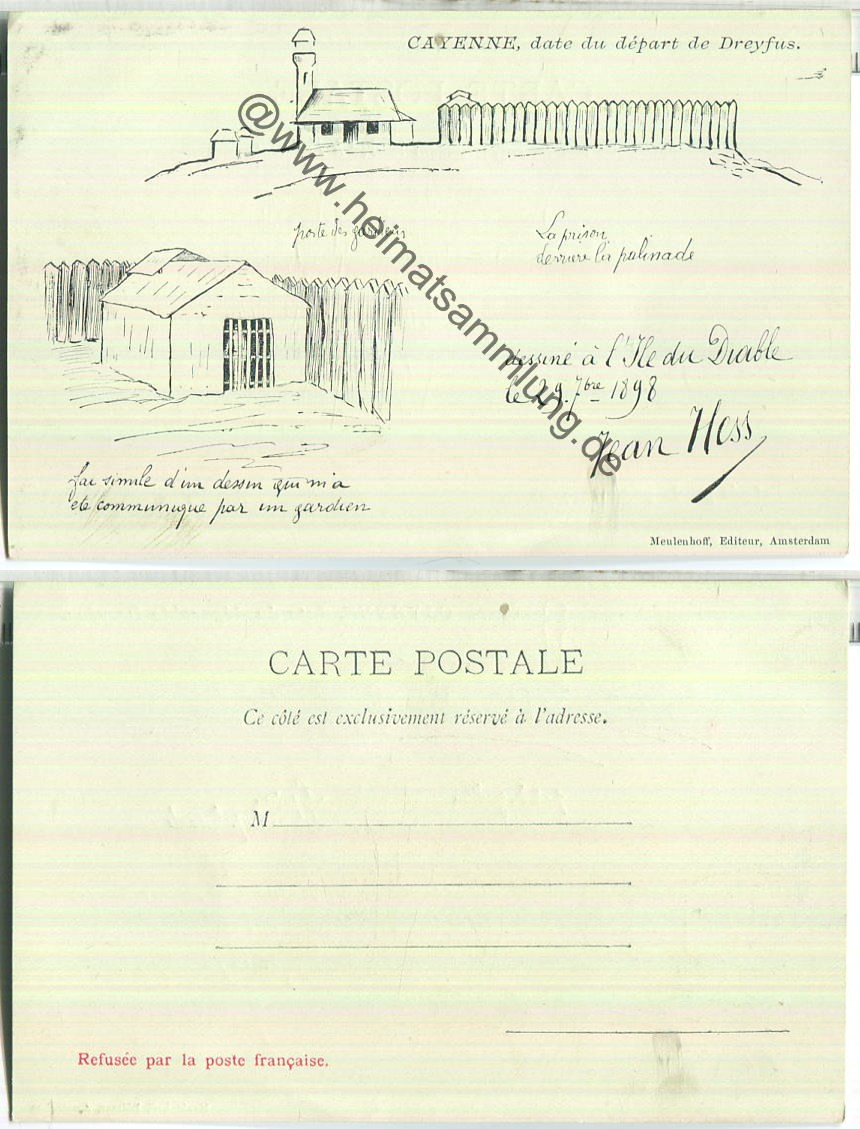 CAYENNE, date du départ de Dreyfus.
poste des gardiens
La prison
derriere la palissade
dessiné à l'Ile du Diable
le 29. 7bre 1898
Jean Hess
Fac simile d'un dessin qui m'a
ete communiqué par un gardien
Meulenhoff, Editeur, Amsterdam
@www.heimatsammlung.de
CARTE POSTALE
Ce côté est exclusivement réservé à l'adresse.
M
Refusée par la poste française.